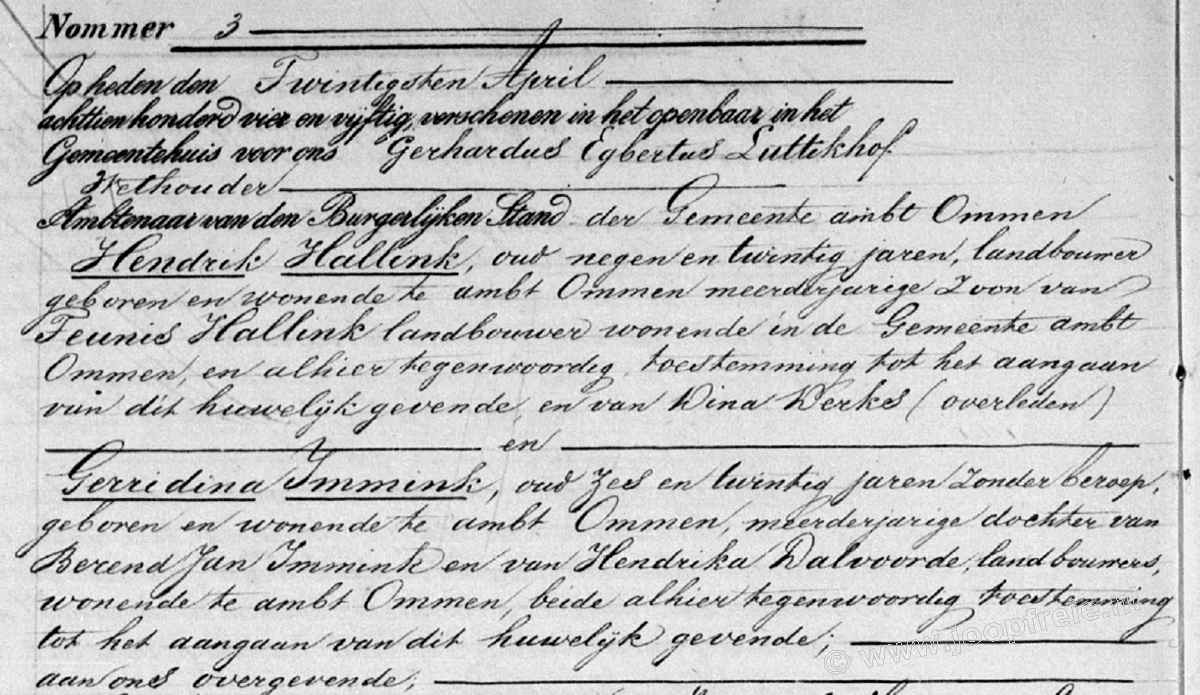 Nommer 3
Op heden den Twintigsten April
achttien honderd vier en vijftig, verschenen in het openbaar in het
Gemeentehuis voor ons Gerhardus Egbertus Luttikhof
Wethouder
Ambtenaar van den Burgerlijken Stand der Gemeente ambt Ommen
Hendrik Hallink, oud negen en twintig jaren, landbouwer
geboren en wonende te ambt Ommen meerderjarige Zoon van
Teunis Hallink landbouwer wonende in de Gemeente ambt
Ommen, en alhier tegenwoordig toestemming tot het aangaan
van dit huwelijk gevende, en van Dina Derks (overleden)
en
Gerridina Immink, oud Zes en twintig jaren Zonder beroep,
geboren en wonende te ambt Ommen, meerderjarige dochter van
Berend Jan Immink en van Hendrika Dalvoorde, landbouwers,
wonende te ambt Ommen, beide alhier tegenwoordig toestemming
tot het aangaan van dit huwelijk gevende;
aan ons overgevende;